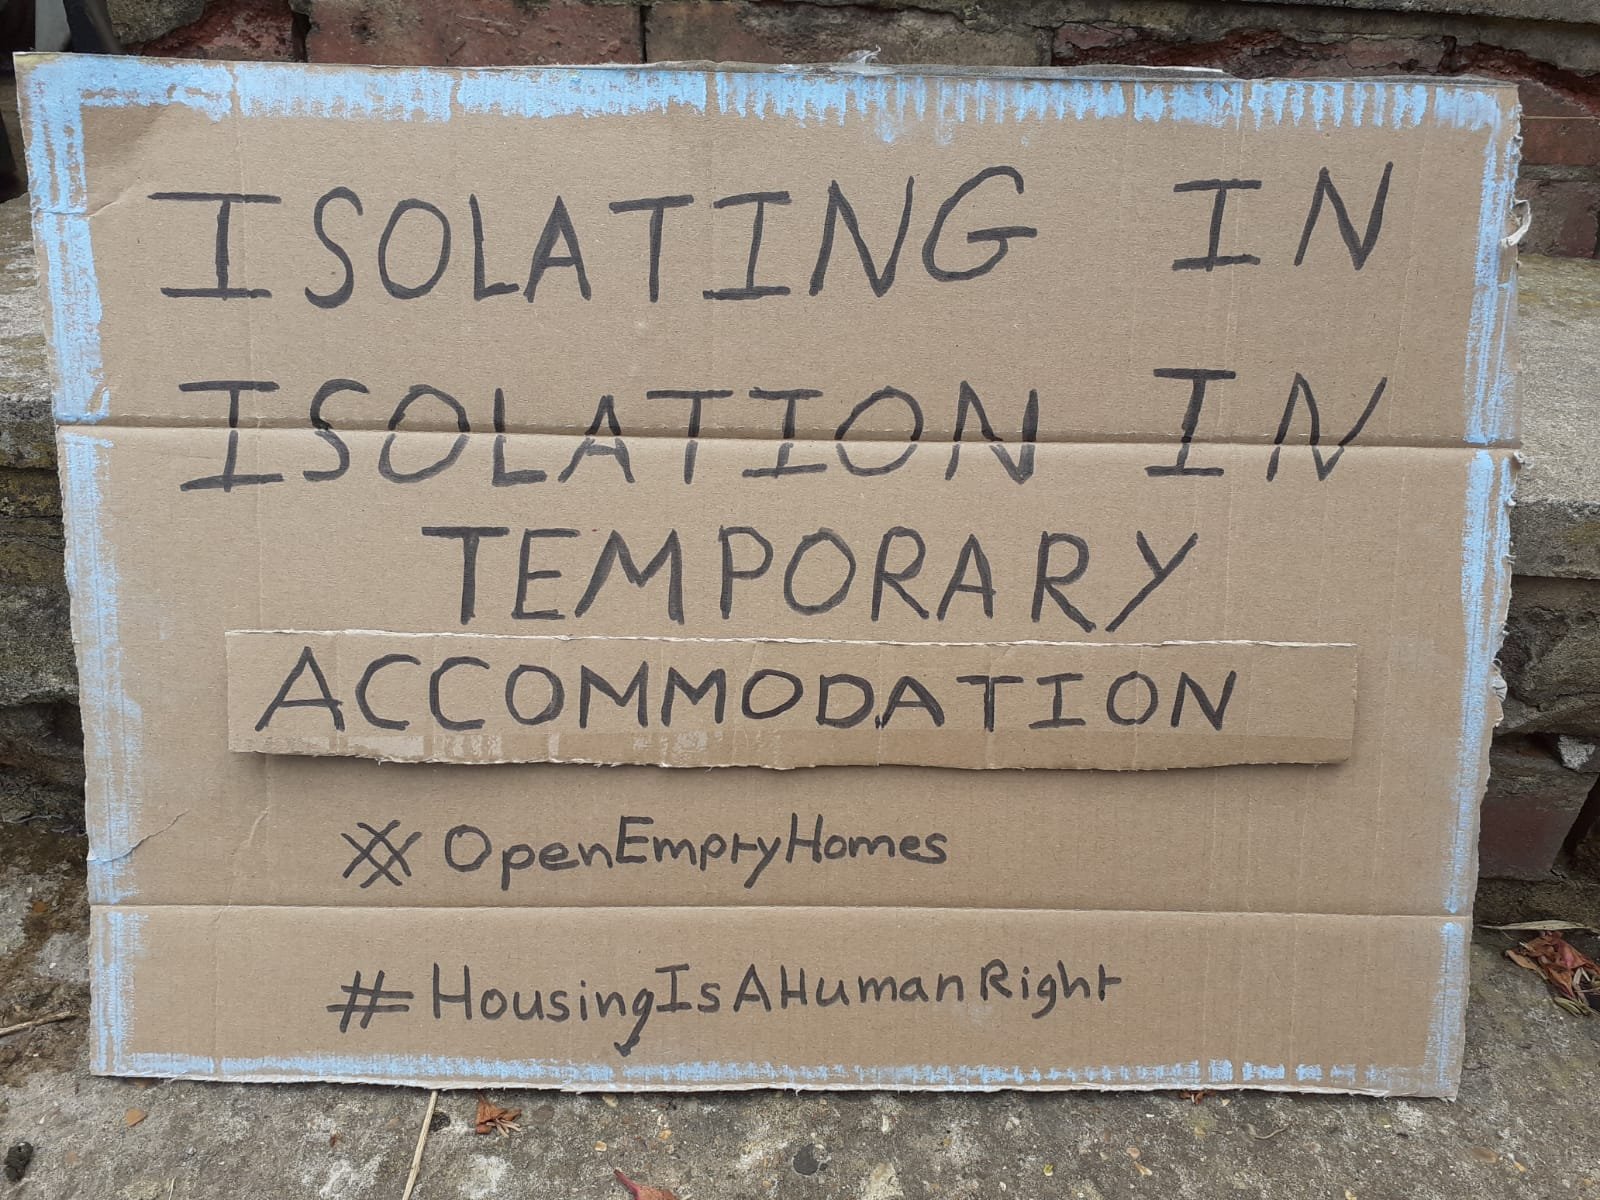 ISOLATING IN
ISOLATION IN
TEMPORARY
ACCOMMODATION
#OpenEmptyHomes
#HousingIsAHumanRight